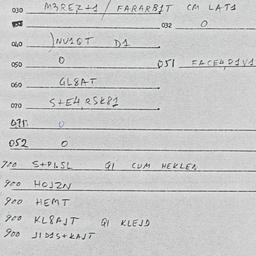 030 M3REZ+1 / FARAR81T CM LAT1
032 0
040 )NU1GT D1
050 0
051 FACE4,D1V1
060 GL8AT
070 S+E4,R5K81
071 0
052 0
700 S+PL5L G1 CUM HEKLER
900 HOJZN
900 HEMT
900 KL8AJT G1 KLEJD
900 J1D1S+KAJT